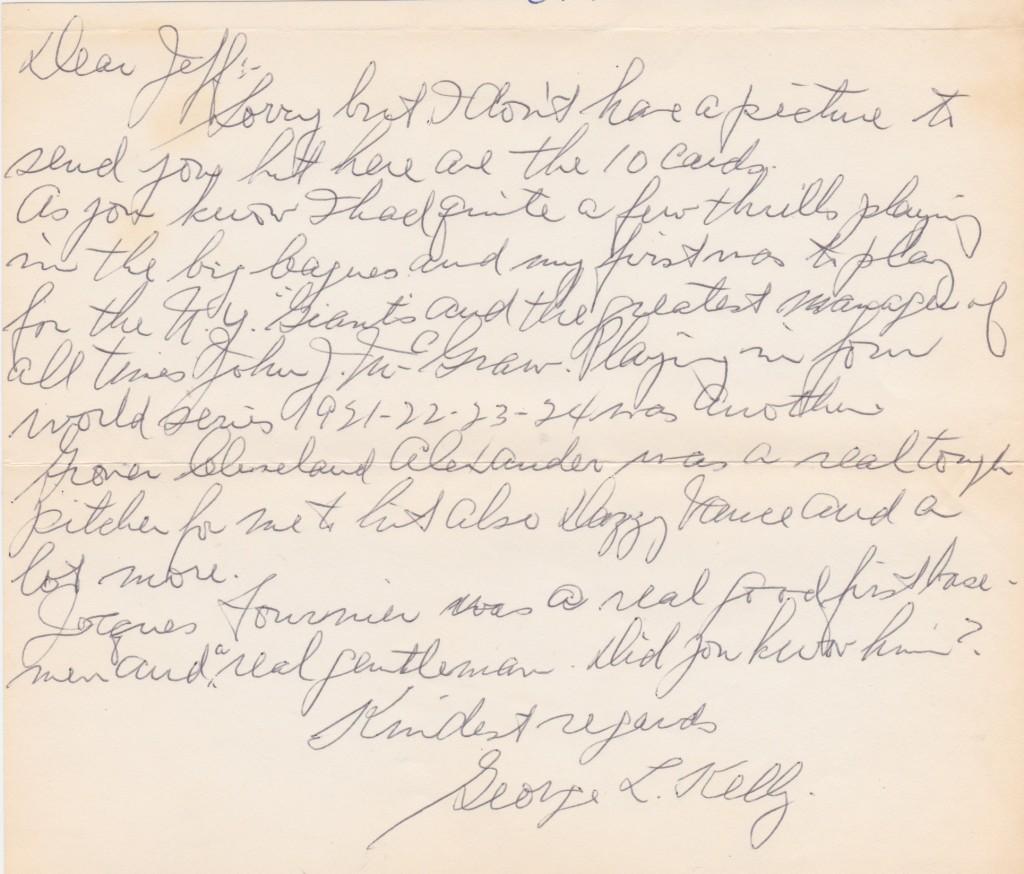 Dear Jeff:-
Sorry but I don't have a picture to
send you but here are the 10 cards.
As you know I had quite a few thrills playing
in the big leagues and my first was to play
for the N.Y. Giants and the greatest manager of
all times John J. McGraw. Playing in four
world series 1921-22-23-24 was another
Grover Cleveland Alexander was a real tough
pitcher for me to hit also Dazzy Vance and a
lot more.
Jacques Fournier was a real good first base-
men and a real gentleman. Did you know him?
Kindest regards
George L. Kelly.